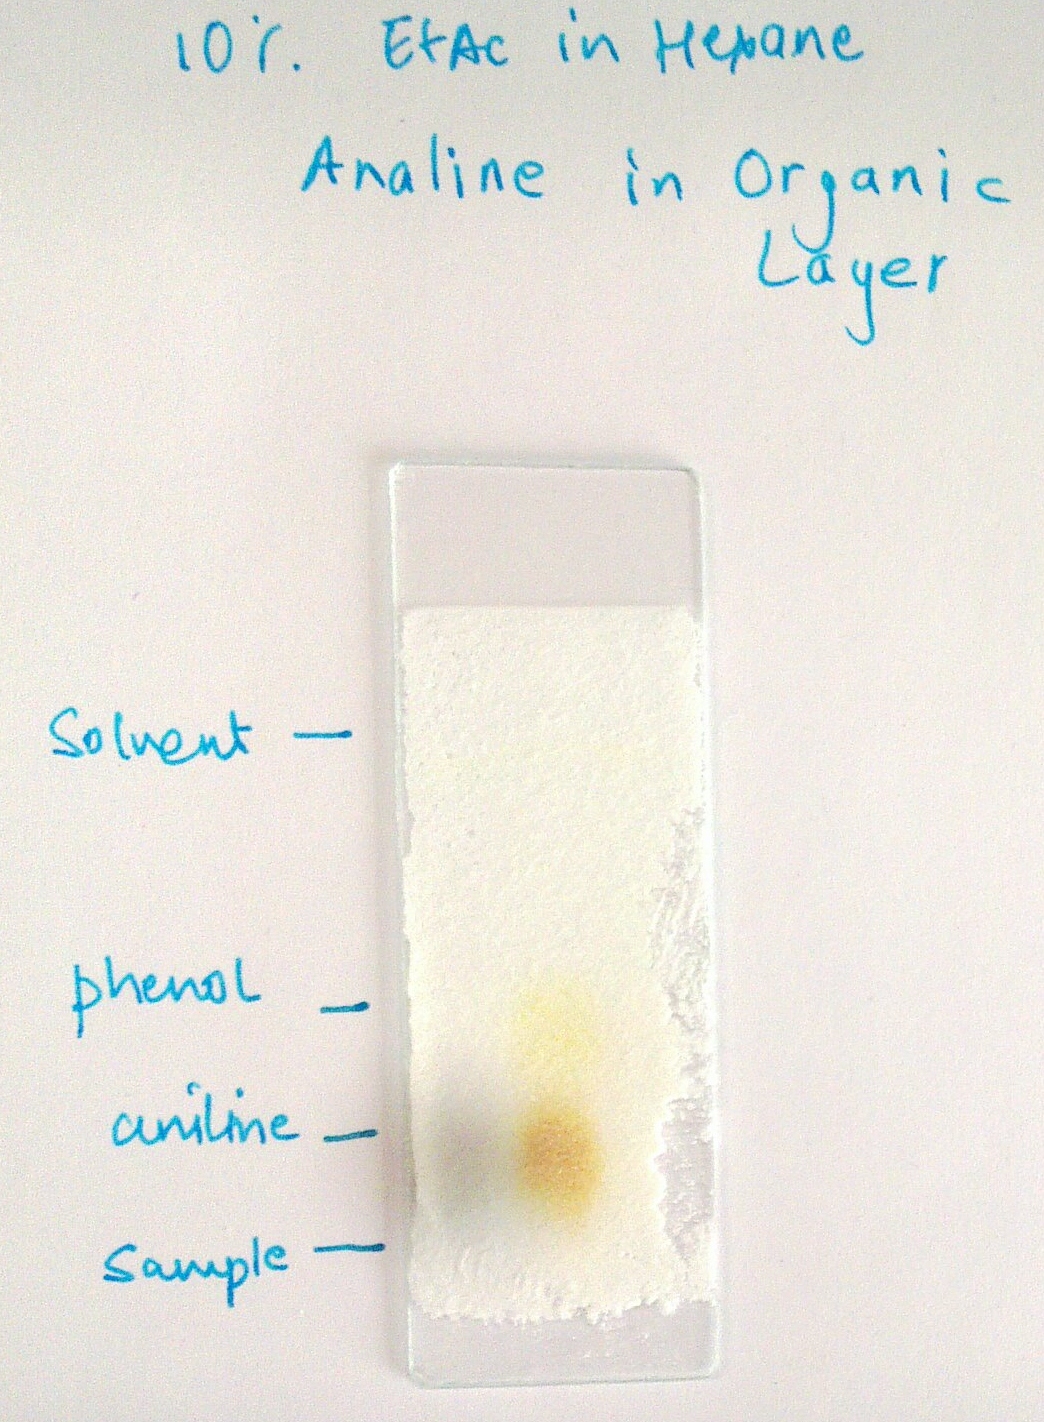 10%. EtAc in Hexane
Analine in Organic
Layer
Solvent —
phenol —
aniline —
Sample —